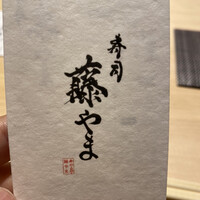 寿司
藤やま